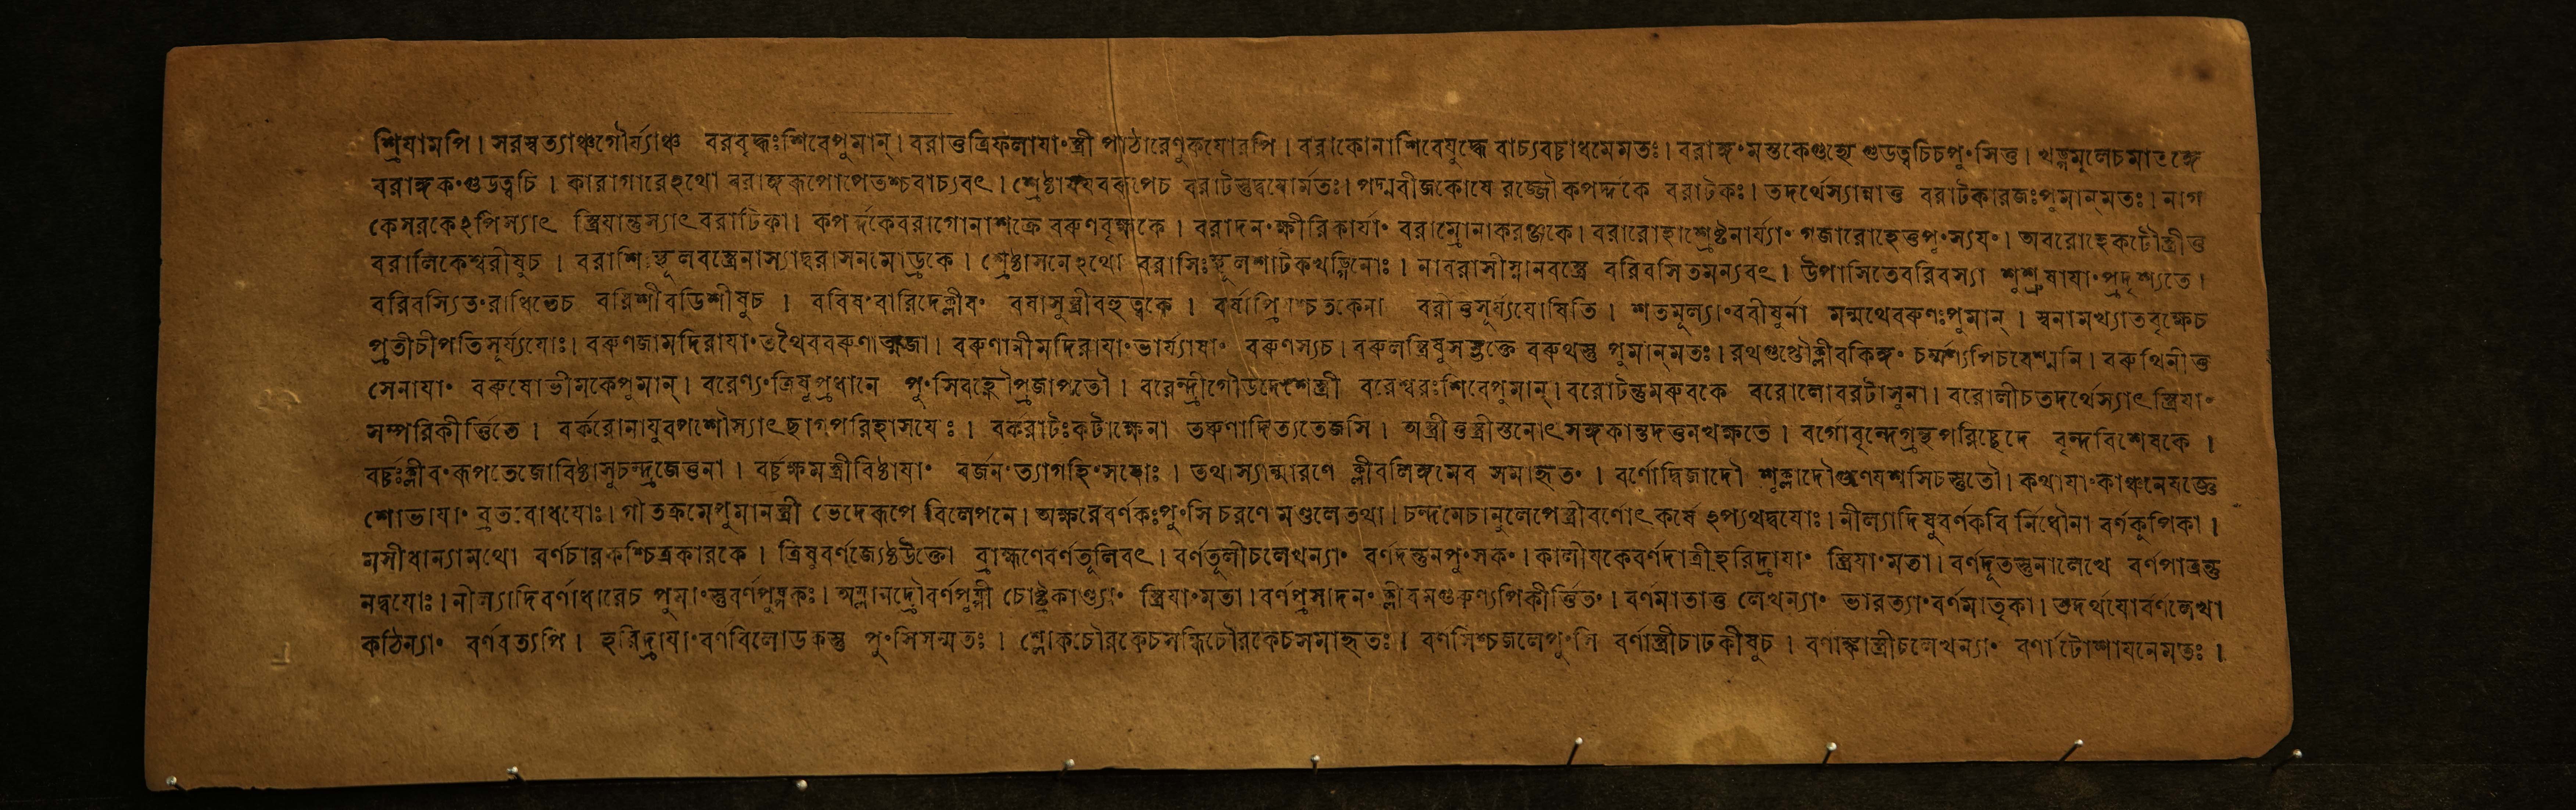 শ্রিযামপি । সরস্বত্যাঞ্চগৌর্য্যাঞ্চ বরবৃদ্ধঃশিবেপুমান্ । বরাত্তত্রিফলাযাং স্ত্রী পাঠারেণুকযোরপি । বরাকোনাশিবেযুদ্ধে বাচ্যবচ্চাধমেমতঃ । বরাঙ্গং মস্তকেগুহ্যে গুডত্বচিচপুংসিত্ত । খড্গমূলেচমাতঙ্গে
বরাঙ্গকংগুডত্বচি । কারাগারেঽথো বরাঙ্গরূপোপেতশ্চবাচ্যবৎ । বরাটস্তুদ্বযোর্মতঃ । পদ্মবীজকোষে রজ্জৌকপর্দ্দকে বরাটকঃ । তদর্থেস্যান্নাত্ত বরাটকারজঃপুমান্মতঃ । নাগ
কেসরকেঽপিস্যাৎ স্ত্রিযান্তুস্যাৎবরাটিকা । কপর্দ্দকেবরাগোনাশক্রে বরুণবৃক্ষকে । বরাদনংক্ষীরিকার্যাং বরাম্রোনাকরঞ্জকে । বরারোহাশ্রেষ্ঠনার্য্যাং গজারোহেত্তপুংস্যযং । অবরোহেকটৌস্ত্রীত্ত
বরালিকেশ্বরীষুচ । বরাশি স্থূলবস্ত্রেনাস্যাদ্বরাসনমোড্রকে । শ্রেষ্ঠাসনেঽথো বরাসিঃস্থূলশাটকখড্গিনোঃ । নাবরাসীম্লানবস্ত্রে বরিবসিতমন্যবৎ । উপাসিতেবরিবস্যা শুশ্রূষাযাং প্রদৃশ্যতে ।
বরিবস্যিতং রাধিতেচ বরিশীবডিশীষুচ । বরিষংবারিদেক্লীবং বষাসুস্ত্রীবহুত্বকে । শতমূল্যাংবরীষুর্না মন্মথেবরুণঃপুমান্ । স্বনামখ্যাতবৃক্ষেচ
প্রতীচীপতিসূর্য্যযোঃ । বরুণজামদিরাযাং তথৈববরুণাত্মজা । বরুণানীমদিরাযাং ভার্য্যাযাং বরুণস্যচ । বরুথস্তু পুমান্মতঃ । রথগুপ্তৌক্লীবকিঙ্গং চর্ম্মণ্যপিচবেশ্মনি । বরুথিনীত্ত
সেনাযাং বরুষোভীমকেপুমান্ । বরেণ্যংত্রিষুপ্রধানে পুংসিবহ্নৌপ্রজাপতৌ । বরেন্দ্রীগৌডদেশেস্ত্রী বরেশ্বরঃশিবেপুমান্ । বরোটন্তুমরুবকে বরোলোবরটাসুনা । বরোলীচতদর্থেস্যাৎ স্ত্রিযাং
সম্পরিকীর্ত্তিতে । বর্করোনাযুবপশৌস্যাৎছাগপরিহাসযোঃ । বর্করাটঃকটাক্ষেনা তরুণাদিত্যতেজসি । বর্গোবৃন্দেগ্রন্থপরিচ্ছেদে বৃন্দবিশেষকে ।
বর্চ্চঃক্লীবংরূপতেজোবিষ্ঠাসুচন্দ্রজেত্তনা । বর্চ্চস্কমস্ত্রীবিষ্ঠাযাং বর্জনংত্যাগহিংসযোঃ । তথাস্যান্মারণে ক্লীবলিঙ্গমেব সমাহৃতং । বর্ণোদ্বিজাদৌ শুক্লাদৌগুণেযশসিচস্তুতৌ । কথাযাংকাঞ্চনেযজ্ঞে
শোভাযাং ব্রতবোধযোঃ । গীতক্রমেপুমানস্ত্রী ভেদেরূপে বিলেপনে । অক্ষরেবর্ণকঃপুংসি চরণে মণ্ডলেতথা । চন্দনেচানুলেপেস্ত্রীবর্ণোৎকর্ষে ঽপ্যথদ্বযোঃ । নীল্যাদিষুবর্ণকবি র্নিধৌনা বর্ণকুপিকা ।
মসীধান্যামথো বর্ণচারকশ্চিত্রকারকে । ত্রিষুবর্ণজ্যেষ্ঠউক্তো ব্রাহ্মণেবর্ণতূলিবৎ । বর্ণতূলীচলেখন্যাং বর্ণদন্তুনপুংসকং । কালীযকেবর্ণদাত্রীহরিদ্রাযাং স্ত্রিযাংমতা । বর্ণদূতস্তুনালেখে বর্ণপাত্রন্তু
নদ্বযোঃ । নীল্যাদিবর্ণাধারেচ পুমাংস্তুবর্ণপুষ্পকঃ । অম্লানদ্রৌবর্ণপুষ্পী চোষ্ট্রকাণ্ড্যাং স্ত্রিযাংমতা । বর্ণপ্রসাদনং ক্লীবমগুরুণ্যপিকীর্ত্তিতং । বর্ণমাতাত্ত লেখন্যাং ভারত্যাংবর্ণমাতৃকা । তদর্থযোর্বর্ণলেখা
কঠিন্যাং বর্ণবত্যপি । হরিদ্রাযাংবর্ণবিলোডকস্তু পুংসিসম্মতঃ । শ্লোকচৌরকেচসন্ধিচৌরকেচসমাহৃতঃ । বর্ণসিশ্চজলেপুংসি বর্ণাস্ত্রীচাঢকীষুচ । বর্ণাঙ্কাস্ত্রীচলেখন্যাং বর্ণাটোগাযনেমতঃ ।